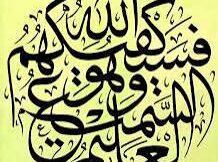 فسيكفيكهم الله
وهو السميع
العليم